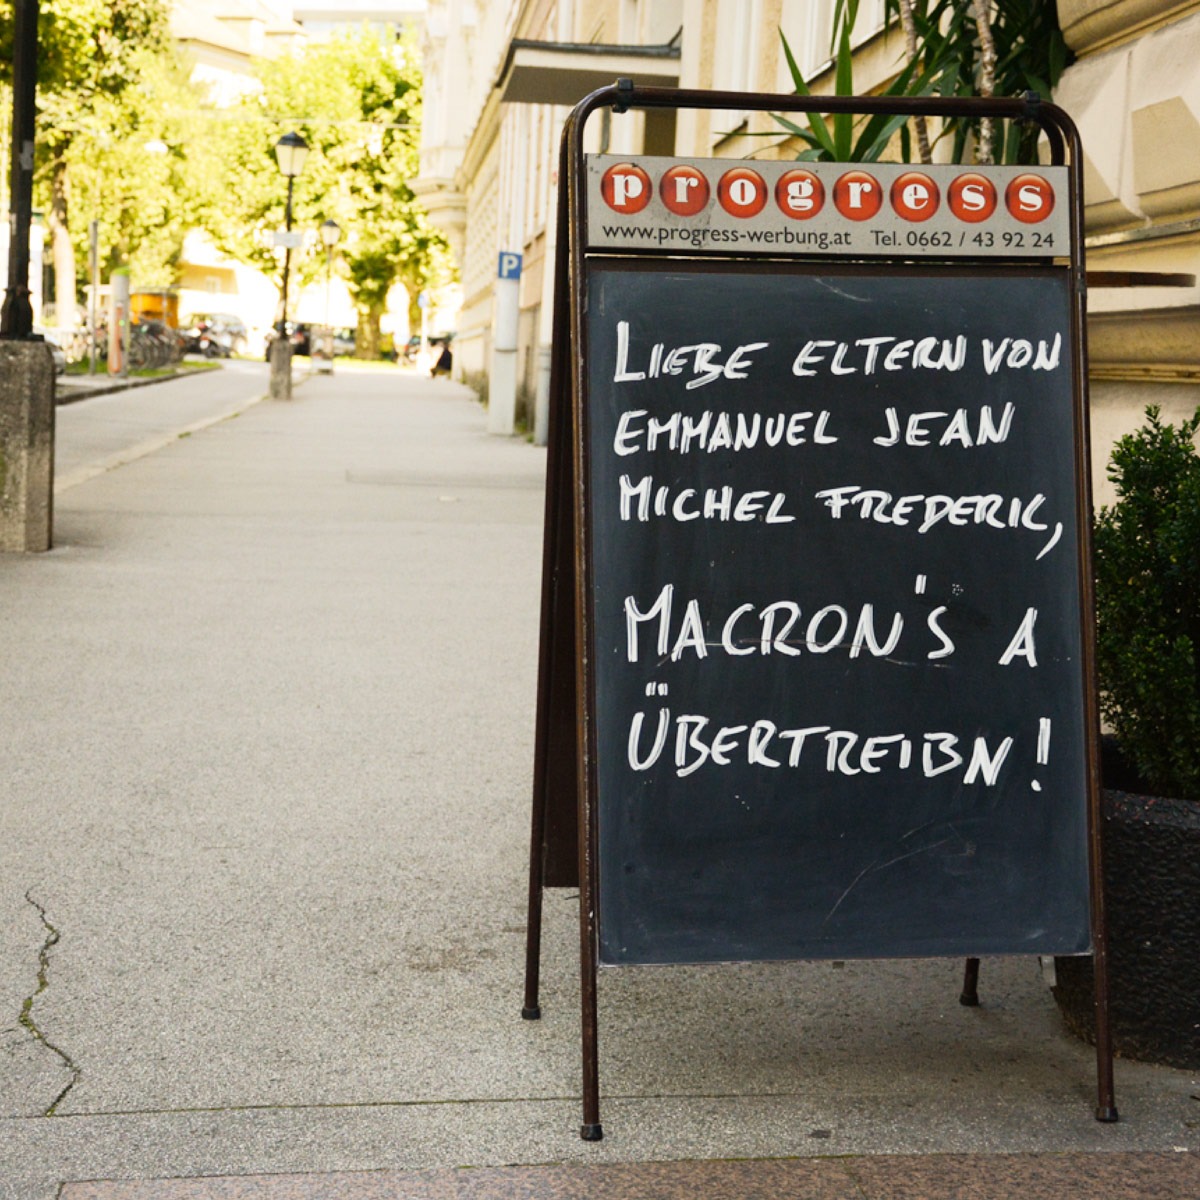 progress
www.progress-werbung.at Tel. 0662 / 43 92 24
P
LIEBE ELTERN VON
EMMANUEL JEAN
MICHEL FREDERIC,
MACRON'S A
ÜBERTREIBN!